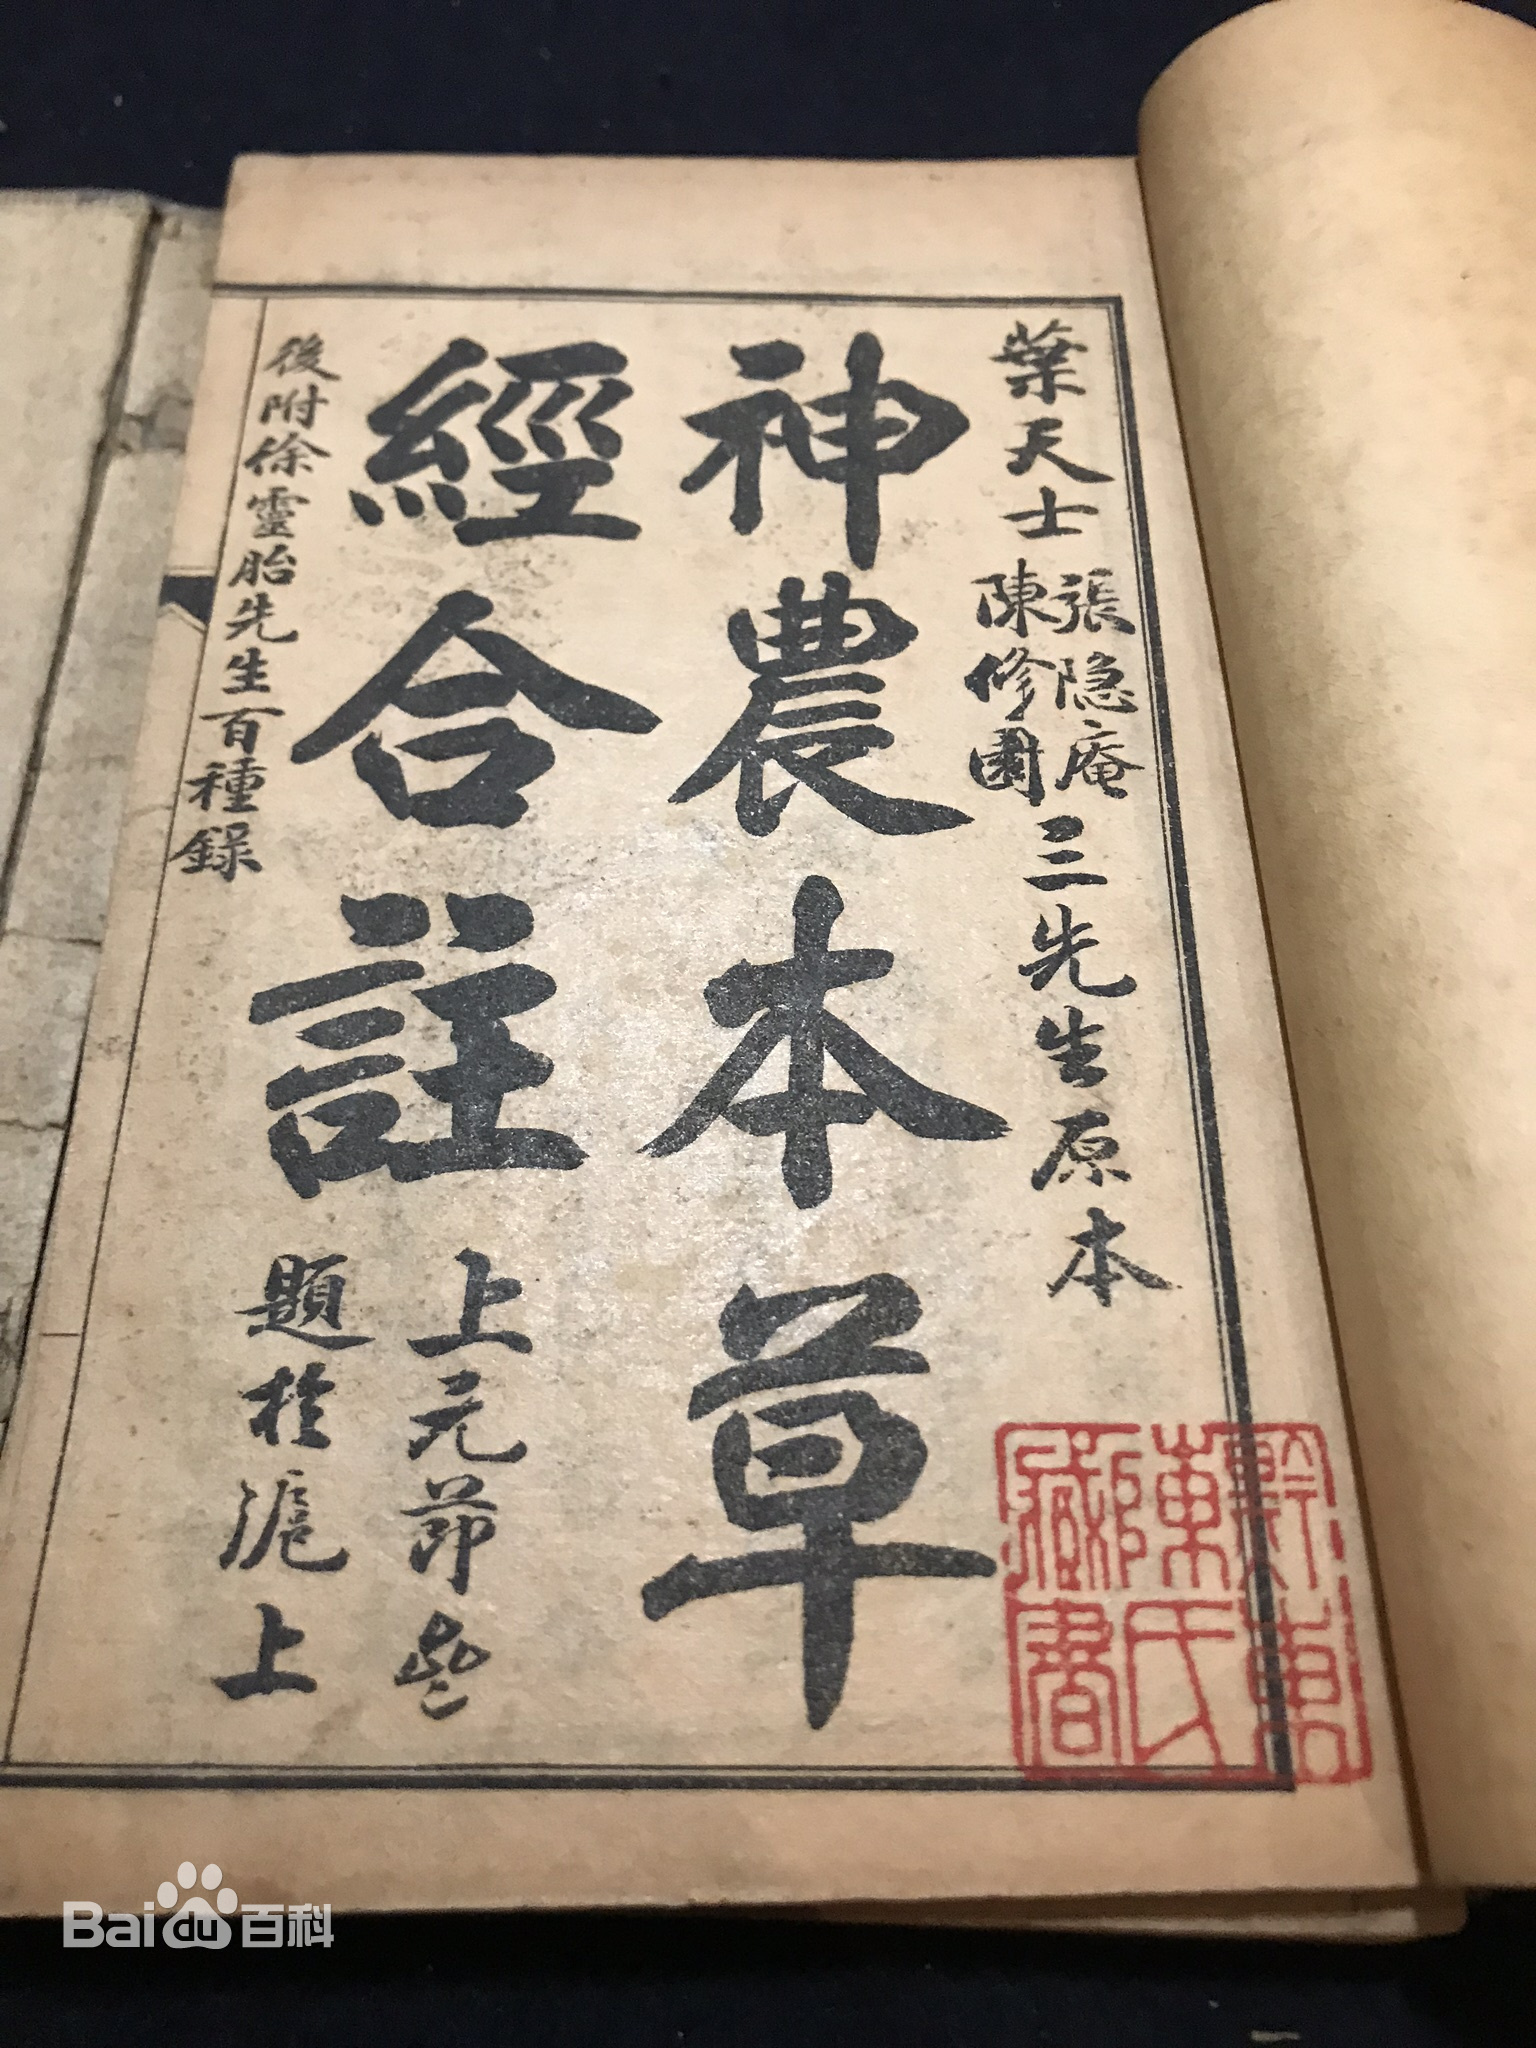 葉天士張隐庵陳修園三先生原本
神農本草
經合註
上元莭
題於滬上
後附徐靈胎先生百種録
黔東
陳氏
藏書
Bai du 百科